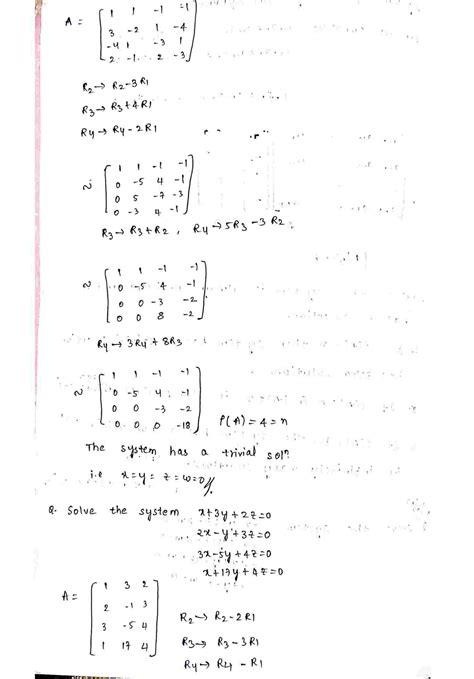 A = [ 1 1 -1 -1
3 -2 1 -4
-4 1 -3 1
2 -1 2 -3 ]
R2 → R2-3R1
R3 → R3+4R1
R4 → R4-2R1
~ [ 1 1 -1 -1
0 -5 4 -1
0 5 -7 -3
0 -3 4 -1 ]
R3 → R3+R2 , R4 → 5R3-3R2.
~ [ 1 1 -1 -1
0 -5 4 -1
0 0 -3 -2
0 0 8 -2 ]
R4 → 3R4 + 8R3
~ [ 1 1 -1 -1
0 -5 4 -1
0 0 -3 -2
0 0 0 -18 ] ρ(A) = 4 = n
The system has a trivial solⁿ
i.e x=y= z=w=0//.
Q. Solve the system x+3y+2z=0
2x-y+3z=0
3x-5y+4z=0
x+17y+4z=0
A = [ 1 3 2
2 -1 3
3 -5 4
1 17 4 ]
R2 → R2-2R1
R3 → R3-3R1
R4 → R4-R1